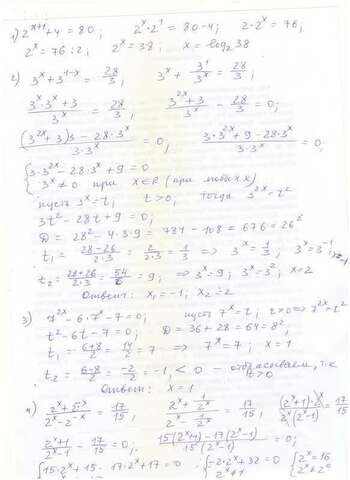 1) 2^(x+1)+4 = 80, 2^x·2^1 = 80-4; 2·2^x = 76,
2^x = 76:2, 2^x = 38; x = log₂38
2) 3^x + 3^(1-x) = 28/3, 3^x + 3^1/3^x = 28/3;
(3^x·3^x+3)/3^x = 28/3, (3^(2x)+3)/3^x - 28/3 = 0;
((3^(2x)+3)3-28·3^x)/(3·3^x) = 0, (3·3^(2x)+9-28·3^x)/(3·3^x) = 0,
{3·3^(2x)-28·3^x+9 = 0
3^x ≠ 0 при x∈R (при любых x)
пусть 3^x = t, t>0, тогда 3^(2x) = t²
3t²-28t+9 = 0,
D = 28²-4·3·9 = 784-108 = 676 = 26²
t₁ = (28-26)/(2·3) = 2/(2·3) = 1/3 ⇒ 3^x = 1/3, 3^x = 3^(-1), x=-1
t₂ = (28+26)/(2·3) = 54/6 = 9, ⇒ 3^x = 9; 3^x = 3², x = 2
Ответ: x₁ = -1; x₂ = 2
3) 7^(2x)-6·7^x-7 = 0; пусть 7^x = t, t>0 ⇒ 7^(2x) = t²
t²-6t-7 = 0, D = 36+28 = 64 = 8²,
t₁ = (6+8)/2 = 14/2 = 7 ⇒ 7^x = 7; x = 1
t₂ = (6-8)/2 = -2/2 = -1, < 0 - отбрасываем, т.к. t>0
Ответ: x = 1
(2^x+1)/(2^x-1) - 17/15 = 0; (15(2^x+1)-17(2^x-1))/(15(2^x-1)) = 0;
{15·2^x+15-17·2^x+17 = 0 {-2·2^x+32 = 0 {2^x = 16